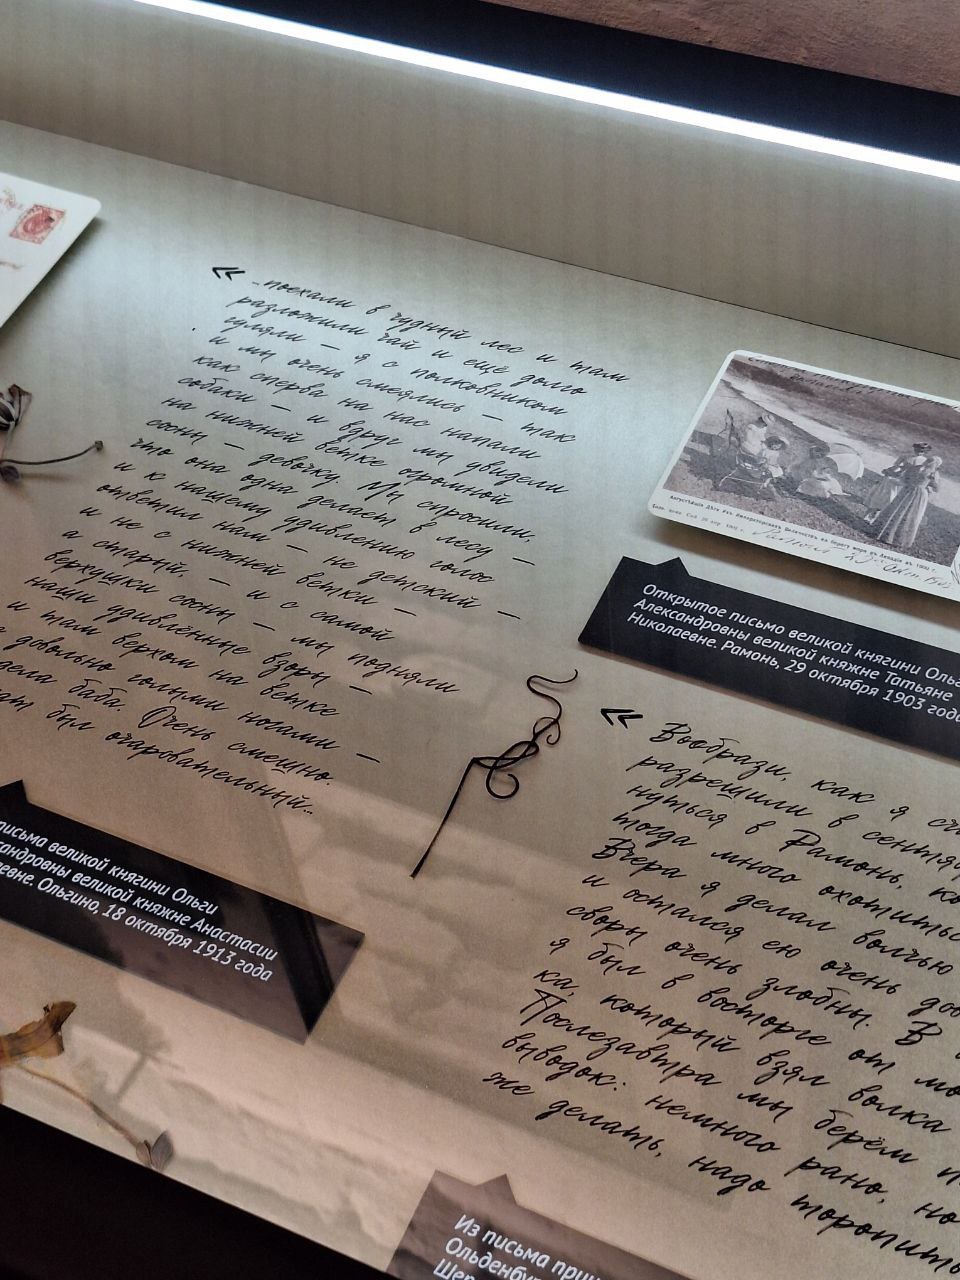 « ...поехали в чудный лес и там
разложили чай и ещё долго
гуляли — я с полковником
и мы очень смеялись — так
как сперва на нас напали
собаки — и вдруг мы увидели
на нижней ветке огромной
сосны — девочку. Мы спросили,
что она одна делает в лесу —
и к нашему удивлению голос
ответил нам — не детский —
и не с нижней ветки —
а старый, — и с самой
верхушки сосны — мы подняли
наши удивлённые взоры —
и там верхом на ветке
с довольно голыми ногами —
баба. Очень смешно.
был очаровательный...
письма великой княгини Ольги
великой княжне Анастасии
Ольгино, 18 октября 1913 года
Августѣйшія Дѣти Ихъ Императорскихъ Величествъ на берегу моря въ Ливадіи въ 1902 г.
Открытое письмо великой княгини
Александровны великой княжне Татьяне
Николаевне. Рамонь, 29 октября 1903 года
« Вообрази, как я
разрешили в
в Рамонь,
тогда много
Вчера я делал волчью
и остался ею очень
своры очень злобны. В
я был в восторге от
который взял волка
Послезавтра мы берём
выводок: немного рано, но
же делать, надо
Из письма